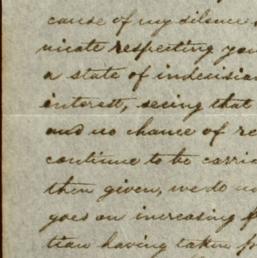 cause of my silence
nicate respecting you
a state of indesision
interest, seeing that
and no chance of re
continue to be carrie
then given, we do no
goes on increasing f
tion having taken